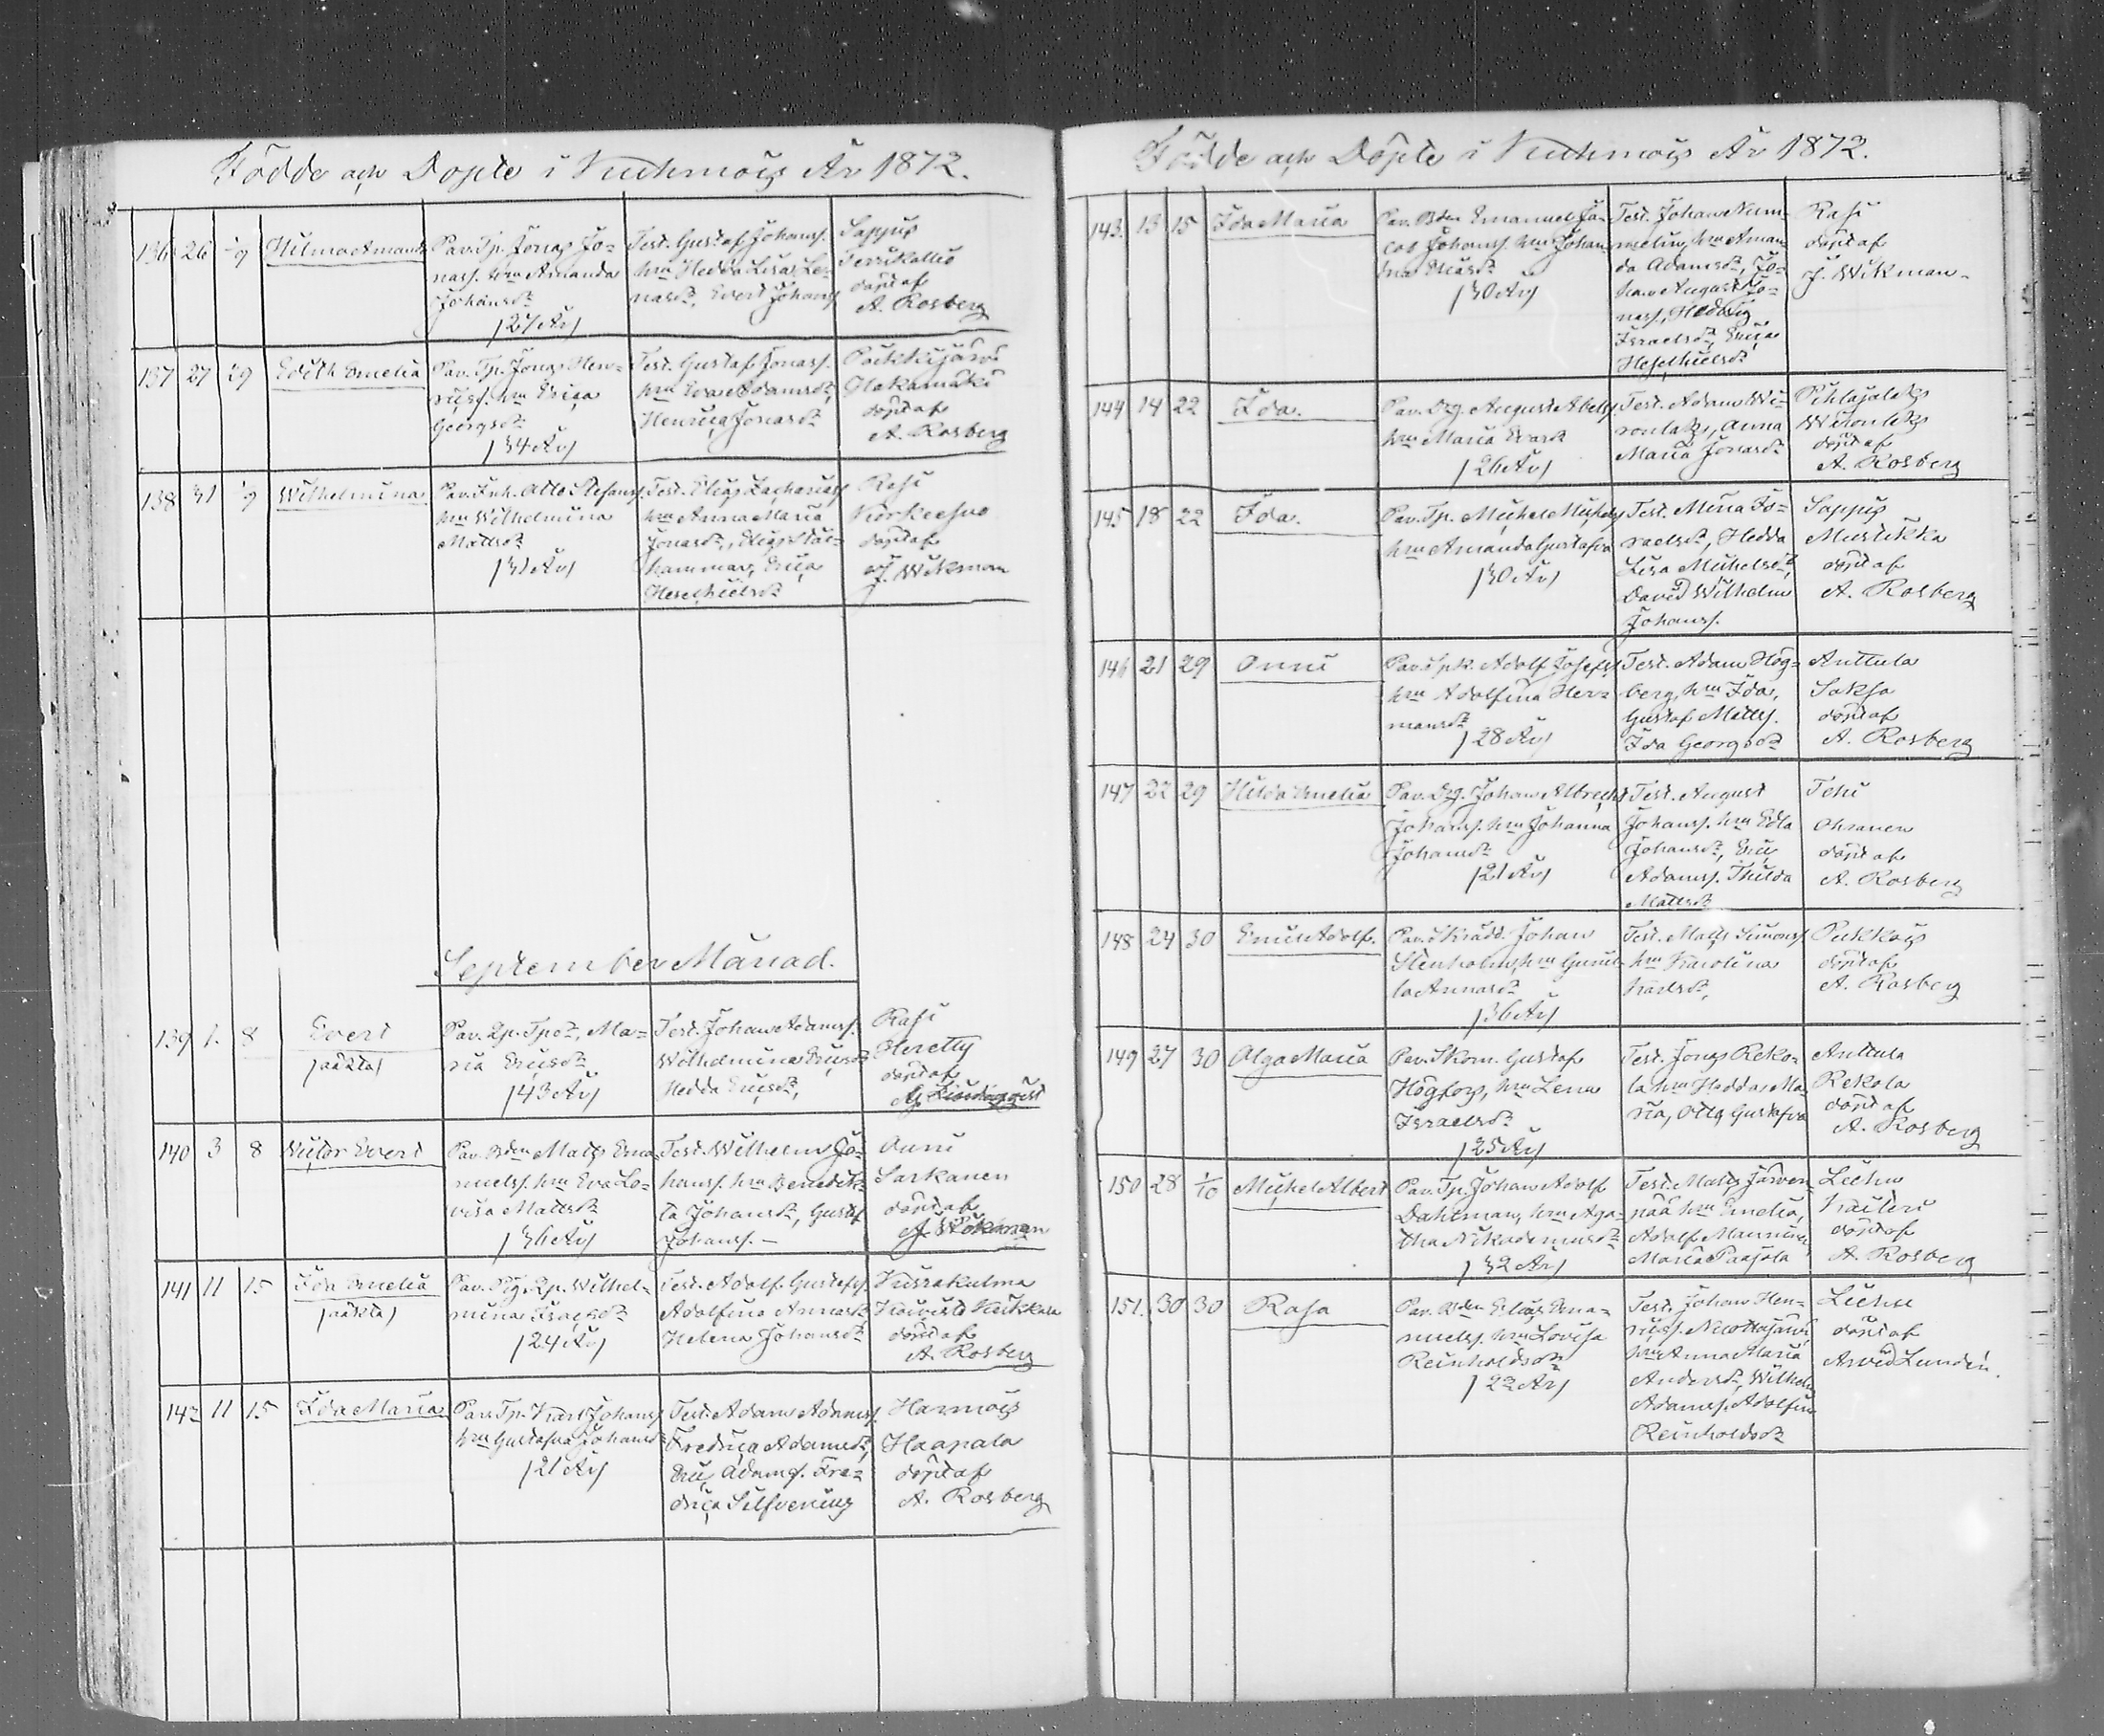 Födde och Döpte i Kuhmois År 1872.
136 26 1/9 Hilma Amanda
Par. Tp. Jonas Jo-
nass. hm Amanda
Johansdr
/27 År/
Test. Gustaf Johanss.
hm Hedda Lisa Le-
nasdr, Evert Johanss
Sappus
döpt af
A. Rosberg
137 27 1/9 Edith Emelia
Par. Tp. Jonas Hen-
ricss. hm Erica
Georgsdr
/34 År/
Test. Gustaf Jonass.
hm Eva Adamsdr,
Henrica Jonasdr
Poikkijärvi
Hakamäki
döpt af
A. Rosberg
138 31 1/9 Wilhelmina
Par. Inh. Otto Stefanss.
hm Wilhelmina
Mattsdr
/31 År/
Test. Elias Zachariass
hm Anna Maria
Jonasdr, Elias Stål-
hammar, Erica
Hesechielsdr
Rasi
döpt af
J. Wikman
September Månad.
139 1. 8 Evert
/oäkta/
Par. Tpdr, Ma-
ria Ericsdr
/43 År/
Test. Johan Adamss.
Wilhelmina Ericsdr
Hedda Ericsdr,
Rasi
Heretty
döpt af
140 3 8 Victor Evert
Par. Bdn Matts Ema-
nuelss. hm Eva Lo-
visa Mattsdr
/36 År/
Test. Wilhelm Jo-
hanss. hm Benedik-
ta Johansdr, Gustaf
Johanss. -
Onni
Sarkanen
döpt af
J. Wikman
141 11 15 Ida Emelia
/oäkta/
Par. Pig. Wilhel-
mina Isacsdr
/24 År/
Test. Adolf Gustafss.
Adolfina Annasdr
Helena Johansdr
Kuivisto
döpt af
A. Rosberg
142 11 15 Ida Maria
Par. Tp. Karl Johanss
hm Gustafva Johansdr
/21 År/
Test. Adam Adamss.
Fredrica Adamsdr,
Eric Adamss. Fre-
drica Silfvenius
Harmois
Haapala
döpt af
A. Rosberg
Födde och Döpte i Kuhmois År 1872.
143. 13 15 Ida Maria
Par. Bdn Emanuel Ja-
cob Johanss. hm Johan-
na Eliasdr
/30 År/
Test. Johan Num-
melin, hm Aman-
da Adamsdr, Jo-
han August Jo-
nass, Hedvig
Israelsdr, Erica
Hesechielsdr
Rasi
döpt af
J. Wikman
144 14 22 Ida.
Par. Drg. August Abelss
hm Maria Evasdr
/26 År/
Test. Adam Wi-
ronlaks, Anna
Maria Jonasdr
Pihlajalaks
Wironlaks
döpt af
A. Rosberg
145 18 22 Ida.
Par. Tp. Michel Michelss
hm Amanda Gustafva
/30 År/
Test. Mina Is-
raelsdr, Hedda
Lisa Michelsdr,
David Wilhelm
Johanss.
Sappus
Mustikka
döpt af
A. Rosberg
146 21 29 Onni
Par. Spk. Adolf Josefss
hm Adolfina Her-
mansdr
/28 År/
Test. Adam Hög-
berg, hm Ida,
Gustaf Mattss.
Ida Georgsdr
Anttula
Saksa
döpt af
A. Rosberg
147 22 29 Hilda Emelia
Par. Drg. Johan Albrecht
Johanss. hm Johanna
Johansdr
/21 År/
Test. August
Johanss. hm Edla
Johansdr, Eric
Adamss. Thilda
Mattsdr
Tehi
Ohranen
döpt af
A. Rosberg
148 24 30 Emil Adolf.
Par. Skrädd. Johan
Stenholm, hm Gunil-
la Annasdr
/36 År/
Test. Matts Simonss
hm Karolina
Karlsdr,
Pukkois
döpt af
A. Rosberg
149 27 30 Olga Maria
Par. Skom. Gustaf
Högfors, hm Lena
Israelsdr
/25 År/
Test. Jonas Reko-
la hm Hedda Ma-
ria, Otto, Gustafva
Anttula
Rekola
döpt af
A. Rosberg
150 28 1/10 Michel Albert
Par. Tp. Johan Adolf
Dahlman, hm Aga-
tha Nikodemusdr
/32 År/
Test. Matts Järven-
pää hm Emelia,
Adolf Manninen,
Maria Paajola
Leehu
döpt af
A. Rosberg
151. 30 30 Rosa
Par. Bdn Elias Ema-
nuelss. hm Lovisa
Reinholdsdr
/22 År/
Test. Johan Hen-
ricss.
hm Anna Maria
Andersdr, Wilhelm
Adamss. Adolfina
Reinholdsdr
döpt af
Arvid Lundén.